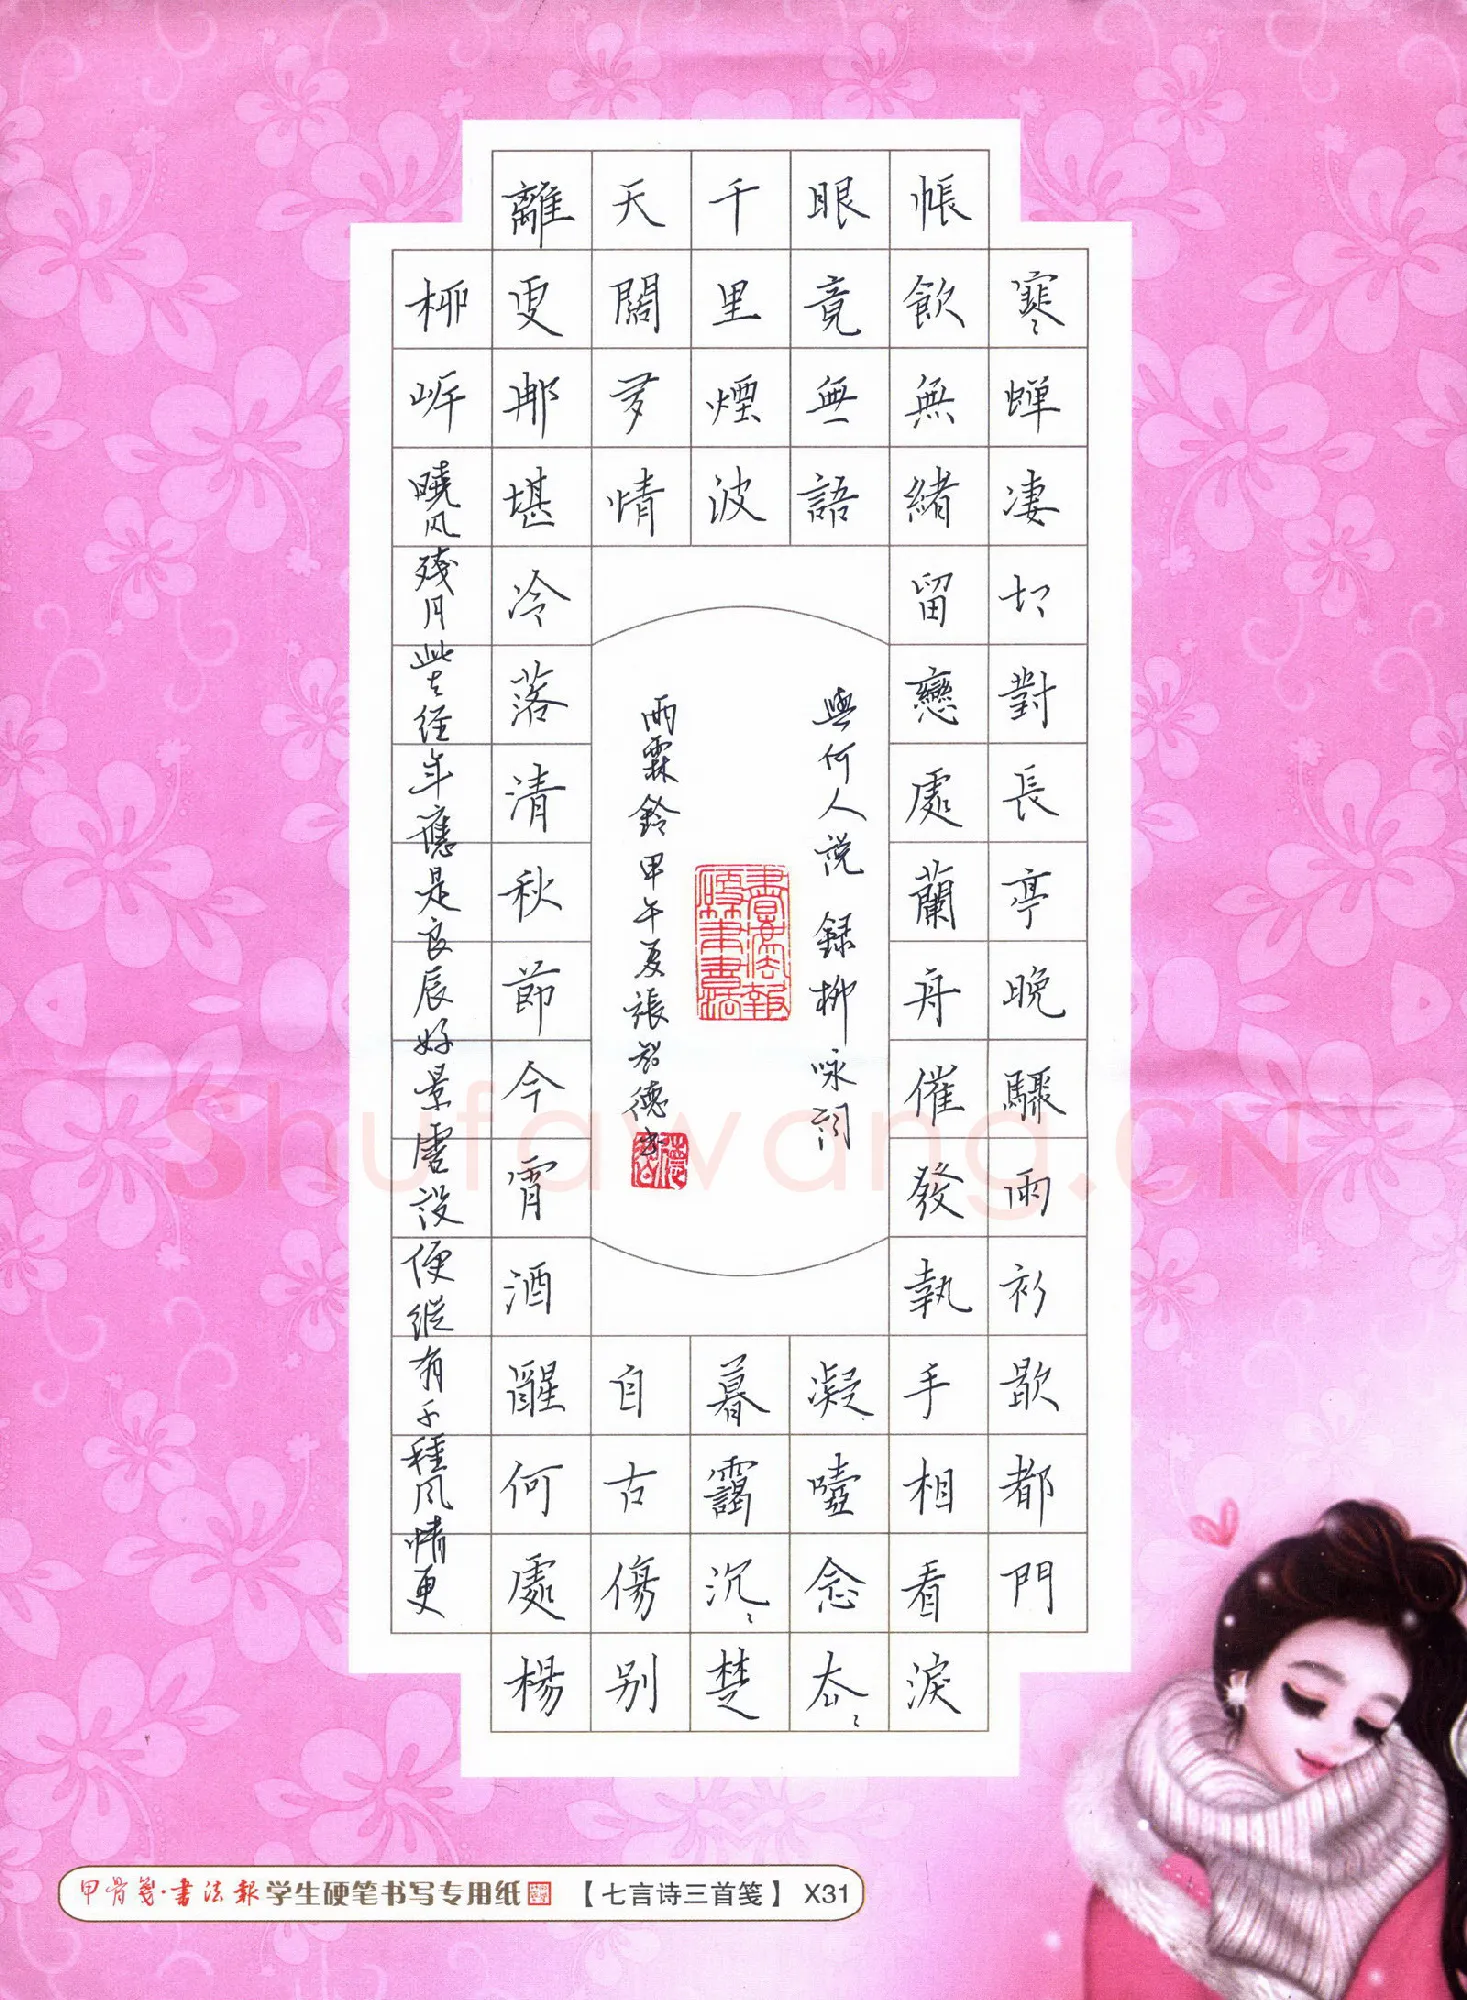 寒蝉凄切對長亭晚驟雨初歇都門
帳飲無緒留戀處蘭舟催發執手相看淚
眼竟無語凝噎念去〻
千里煙波暮靄沉〻楚
天闊多情自古傷別
離更那堪冷落清秋節今宵酒醒何處楊
柳岸曉风殘月此去经年應是良辰好景虛設便縱有千種风情更
與何人説 録柳咏詞
硬筆書法
雨霖鈴甲午夏張智德書
Shufawang.CN
甲骨笺·書法報 学生硬笔书写专用纸 【七言诗三首笺】 X31